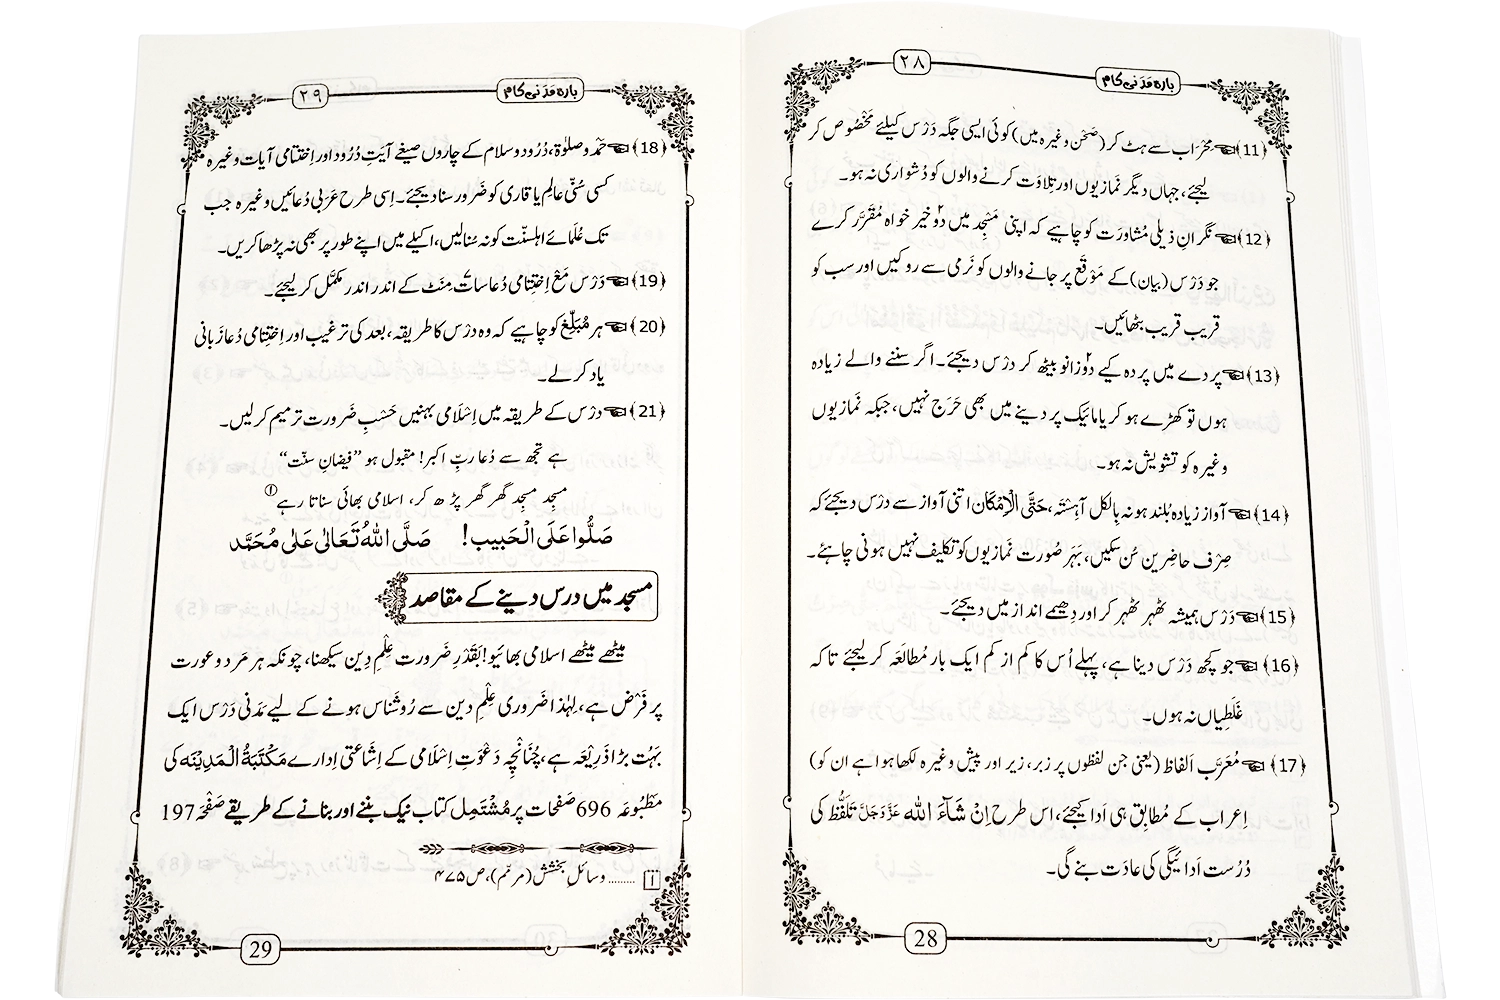 ۲۸
بارہ مَدَنی کام
﴿11﴾ مِحْرَاب سے ہٹ کر (صَحْن وغیرہ میں) کوئی ایسی جگہ دَرْس کیلئے مَخْصُوص کر
لیجئے، جہاں دیگر نمازیوں اور تِلاوَت کرنے والوں کو دُشواری نہ ہو۔
﴿12﴾ نگرانِ ذیلی مُشاوَرَت کو چاہیے کہ اپنی مَسْجِد میں دو۲ خیر خواہ مُقَرَّر کرے
جو دَرْس (بیان) کے مَوْقَع پر جانے والوں کو نَرمی سے روکیں اور سب کو
قریب قریب بٹھائیں۔
﴿13﴾ پردے میں پردہ کیے دو۲ زانو بیٹھ کر دَرْس دیجئے۔ اگر سننے والے زیادہ
ہوں تو کھڑے ہو کر یا مائیک پر دینے میں بھی حَرَج نہیں، جبکہ نَمازیوں
وغیرہ کو تشویش نہ ہو۔
﴿14﴾ آواز زیادہ بُلند ہو نہ بِالکل آہِستہ، حَتَّی الْاِمْکَان اتنی آواز سے دَرْس دیجئے کہ
صِرْف حاضِرین سُن سکیں، بَہَر صُورت نَمازیوں کو تکلیف نہیں ہونی چاہئے۔
﴿15﴾ دَرْس ہمیشہ ٹھہر ٹھہر کر اور دِھیمے انداز میں دیجئے۔
﴿16﴾ جو کچھ دَرْس دینا ہے، پہلے اُس کا کم از کم ایک بار مُطالَعَہ کر لیجئے تا کہ
غَلَطِیاں نہ ہوں۔
﴿17﴾ مُعَرَّب اَلفاظ (یعنی جن لفظوں پر زبر، زیر اور پیش وغیرہ لکھا ہوا ہے ان کو)
اِعراب کے مُطابِق ہی اَدا کیجئے، اس طرح اِنْ شَآءَ اللّٰہ عَزَّوَجَلَّ تَلَفُّظ کی
دُرُست اَدائیگی کی عادَت بنے گی۔
28
بارہ مَدَنی کام
۲۹
﴿18﴾ حَمْد وصلوٰۃ، دُرُود وسلام کے چاروں صیغے آیَتِ دُرُود اور اِخْتِتامی آیات وغیرہ
کسی سُنّی عالِم یا قاری کو ضَرور سنا دیجئے۔ اِسی طرح عَرَبی دُعائیں وغیرہ جب
تک عُلَمائے اہلسنّت کو نہ سُنا لیں، اکیلے میں اپنے طور پر بھی نہ پڑھا کریں۔
﴿19﴾ دَرْس مَعَ اِخْتِتامی دُعا سات۷ مِنَٹ کے اندر اندر مکمَّل کر لیجئے۔
﴿20﴾ ہر مُبَلِّغ کو چاہیے کہ وہ دَرْس کا طریقہ، بعد کی ترغیب اور اِخْتِتامی دُعا زَبانی
یاد کر لے۔
﴿21﴾ دَرْس کے طریقہ میں اِسْلامی بہنیں حَسْبِ ضَرورت ترمیم کر لیں۔
ہے تجھ سے دُعا ربِّ اکبر! مقبول ہو ”فیضانِ سنّت“
مسجد مسجد گھر گھر پڑھ کر، اسلامی بھائی سناتا رہے①
صَلُّوا عَلَی الْحَبِیب! صَلَّی اللّٰہُ تَعَالٰی عَلٰی مُحَمَّد
مسجد میں درس دینے کے مقاصد
میٹھے میٹھے اسلامی بھائیو! بَقَدْرِ ضَرورت عِلْمِ دِین سیکھنا، چونکہ ہر مَرد و عورت
پر فَرْض ہے، لِہٰذا ضَروری عِلْمِ دین سے رُوشَناس ہونے کے لیے مَدَنی دَرْس ایک
بَہُت بڑا ذَرِیْعَہ ہے، چُنَانْچِہ دَعْوَتِ اِسْلامی کے اِشَاعَتی اِدارے مَکْتَبَۃُ الْمَدِیْنَہ کی
مَطْبُوعَہ 696 صَفحات پر مُشْتَمِل کتاب نیک بننے اور بنانے کے طریقے صَفْحَہ 197
۱ ....... وسائلِ بخشش (مرمّم)، ص ۴۷۵
29